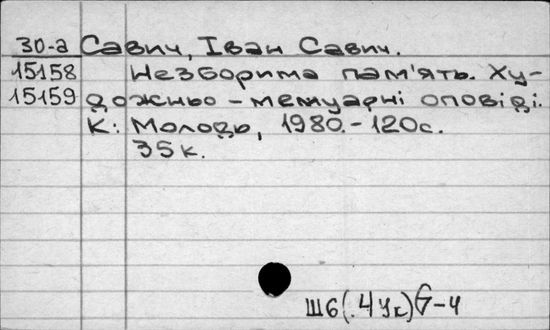 30-а Савич, Іван Савич.
15158 Незборима пам'ять. Ху-
15159 дожньо - мемуарні оповіді.
К: Молодь, 1980. - 120с.
35к.
Ш6(.4Ук)6-4